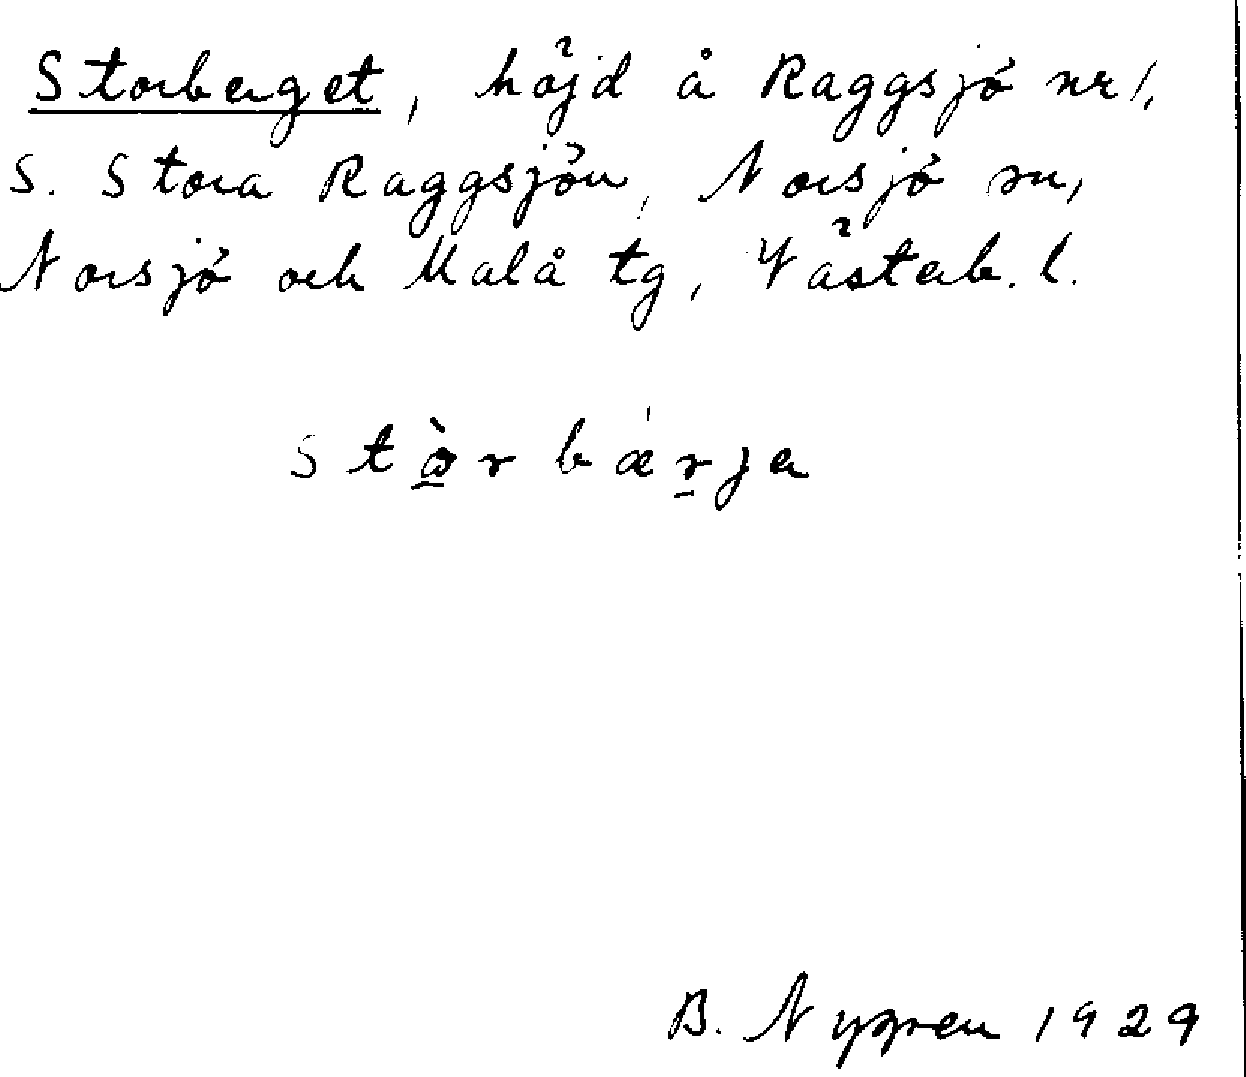 Storberget, höjd å Raggsjö nr 1,
S. Stora Raggsjön, Norsjö sn,
Norsjö och Malå tg, Västerb. l.
stò̲rbǽr̲ja
B. Nygren 1929